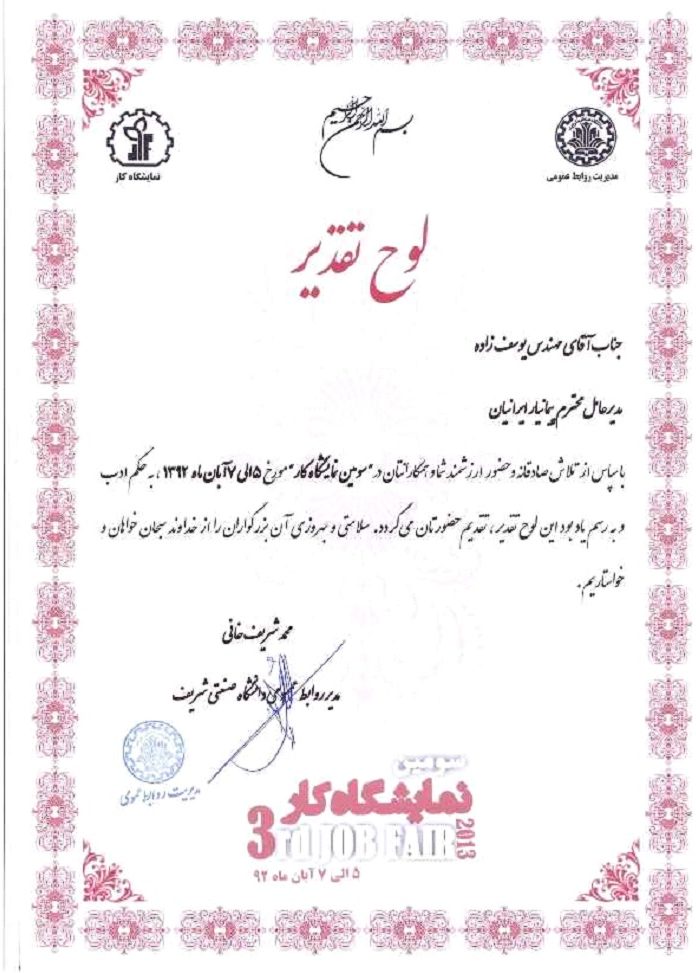 بسم الله الرحمن الرحیم
JF
نمایشگاه کار
مدیریت روابط عمومی
لوح تقدیر
جناب آقای مهندس یوسف زاده
مدیرعامل محترم پیمانیار ایرانیان
با سپاس از تلاش صادقانه و حضور ارزشمند شما و همکارانتان در "سومین نمایشگاه کار" مورخ ۵ الی ۷ آبان ماه ۱۳۹۲، به حکم ادب
و به رسم یادبود این لوح تقدیر، تقدیم حضورتان می گردد. سلامتی و بهروزی آن بزرگواران را از خداوند سبحان خواهان و
خواستاریم.
محمد شریف خانی
مدیر روابط عمومی دانشگاه صنعتی شریف
مدیریت روابط عمومی
سومین
نمایشگاه کار
3rd JOB FAIR
2013
۵ الی ۷ آبان ماه ۹۲